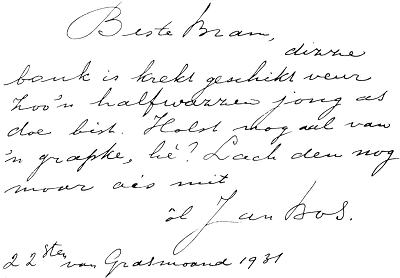 Beste Bram,
dizze
bouk is krekt geschikt veur
zoo'n halfwazzen jong as
doe bist. Holst nog aal van
'n grapke, hè? Lach den nog
moar ais mit
òl Jan Bos.
22sten van Grasmoand 1931